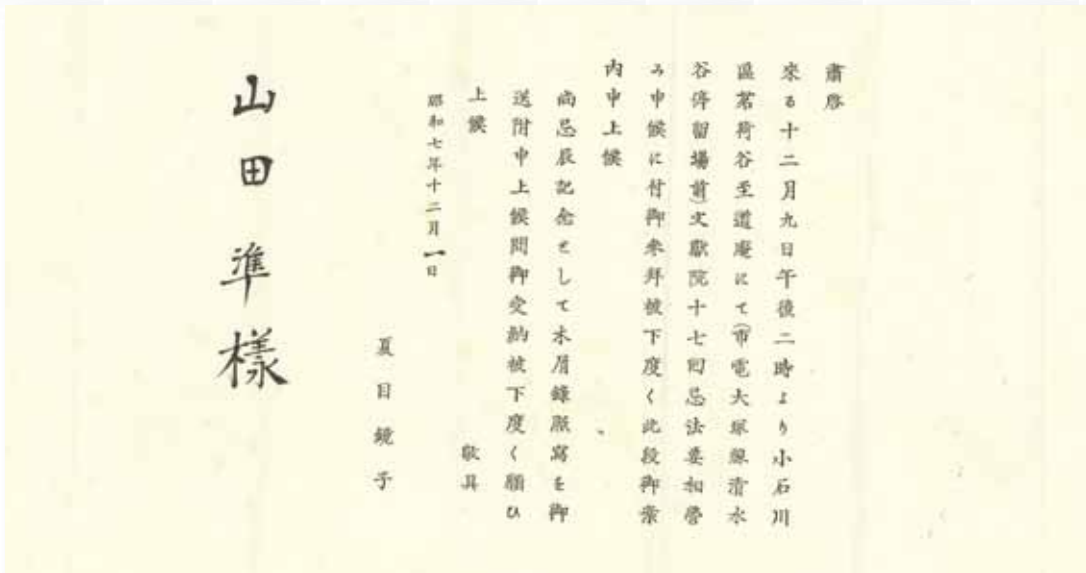 肅啓
來る十二月九日午後二時より小石川
區茗荷谷至道庵にて(市電大塚線清水
谷停留場前)文獻院十七回忌法要相營
み申候に付御來拜被下度く此段御案
内申上候
尚忌辰記念として木屑錄脈寫を御
送附申上候間御受納被下度く願ひ
上候 敬具
昭和七年十二月一日
夏目鏡子
山田準樣